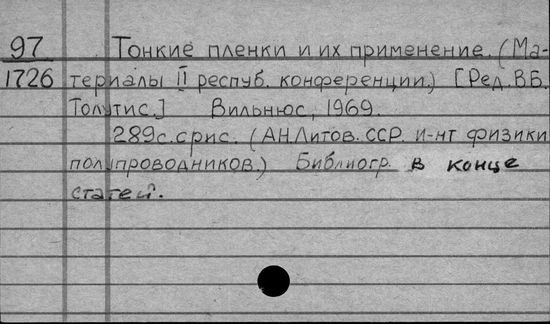 97 Тонкие пленки и их применение. (Ма-
1726 териалы II респуб. конференции.) [Ред. В.Б.
Толутис.] Вильнюс, 1969.
289с. срис. (АН Литов. ССР. и-нт физики
полупроводников.) Библиогр. в конце
статей.